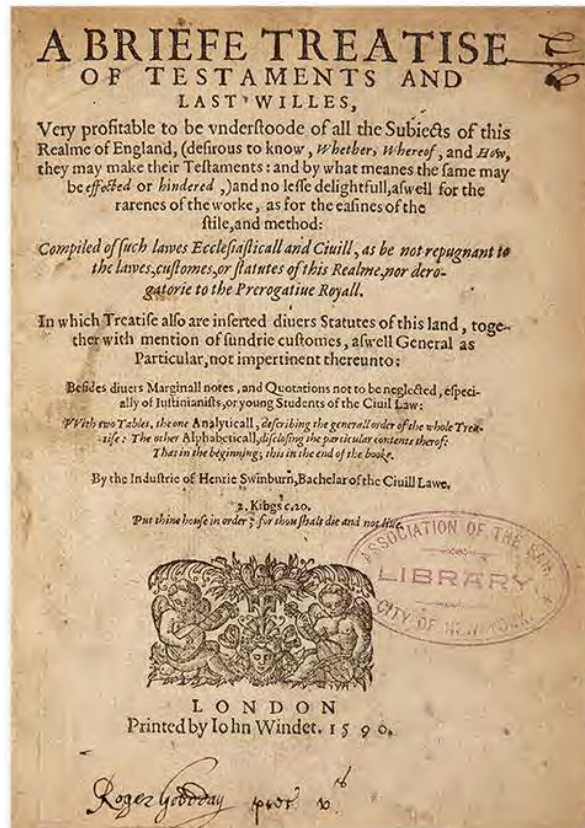 A BRIEFE TREATISE
OF TESTAMENTS AND
LAST WILLES,
Very profitable to be vnderſtoode of all the Subiects of this
Realme of England, (deſirous to know, Whether, Whereof, and How,
they may make their Teſtaments: and by what meanes the ſame may
be effected or hindered,) and no leſſe delightfull, aſwell for the
rarenes of the worke, as for the eaſines of the
ſtile, and method:
Compiled of ſuch lawes Eccleſiaſticall and Ciuill, as be not repugnant to
the lawes, cuſtomes, or ſtatutes of this Realme, nor dero-
gatorie to the Prerogatiue Royall.
In which Treatiſe alſo are inſerted diuers Statutes of this land, toge-
ther with mention of ſundrie cuſtomes, aſwell General as
Particular, not impertinent thereunto:
Beſides diuers Marginall notes, and Quotations not to be neglected, eſpeci-
ally of Iuſtinianiſts, or young Students of the Ciuil Law:
With two Tables, the one Analyticall, deſcribing the generall order of the whole Trea-
tiſe: The other Alphabeticall, diſcloſing the particular contents therof:
That in the beginning; this in the end of the booke.
By the Induſtrie of Henrie Swinburn, Bachelar of the Ciuill Lawe.
2. Kibgs c.20.
Put thine houſe in order; for thou ſhalt die and not liue.
ASSOCIATION OF THE BAR
LIBRARY
CITY OF NEW YORK
LONDON
Printed by Iohn Windet. 1590.
Roger